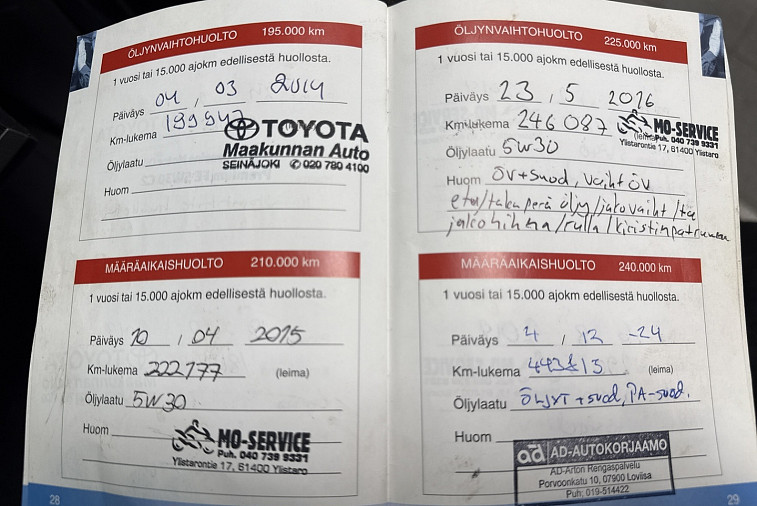 ÖLJYNVAIHTOHUOLTO 195.000 km
1 vuosi tai 15.000 ajokm edellisestä huollosta.
Päiväys 04 , 03 2014
Km-lukema 199947
TOYOTA
Maakunnan Auto
SEINÄJOKI 020 780 4100
Öljylaatu
Huom
MÄÄRÄAIKAISHUOLTO 210.000 km
1 vuosi tai 15.000 ajokm edellisestä huollosta.
Päiväys 10 , 04 2015
Km-lukema 222177 (leima)
Öljylaatu 5W30
Huom
MO-SERVICE
Puh. 040 739 9331
Ylistarontie 17, 61400 Ylistaro
28
ÖLJYNVAIHTOHUOLTO 225.000 km
1 vuosi tai 15.000 ajokm edellisestä huollosta.
Päiväys 23 , 5 2016
Km-lukema 246 087 (leima)
MO-SERVICE
Puh. 040 739 9331
Ylistarontie 17, 61400 Ylistaro
Öljylaatu 5W30
Huom ÖV+suod, vaiht öv
etu/taka perä öljy/jakovaiht/
jakohihna/rulla/kiristinpatruuna
MÄÄRÄAIKAISHUOLTO 240.000 km
1 vuosi tai 15.000 ajokm edellisestä huollosta.
Päiväys 4 / 12 -24
Km-lukema (leima)
Öljylaatu ÖLJYT + suod, PA-suod.
Huom
ad AD-AUTOKORJAAMO
AD-Arton Rengaspalvelu
Porvoonkatu 10, 07900 Loviisa
Puh: 019-514422
29